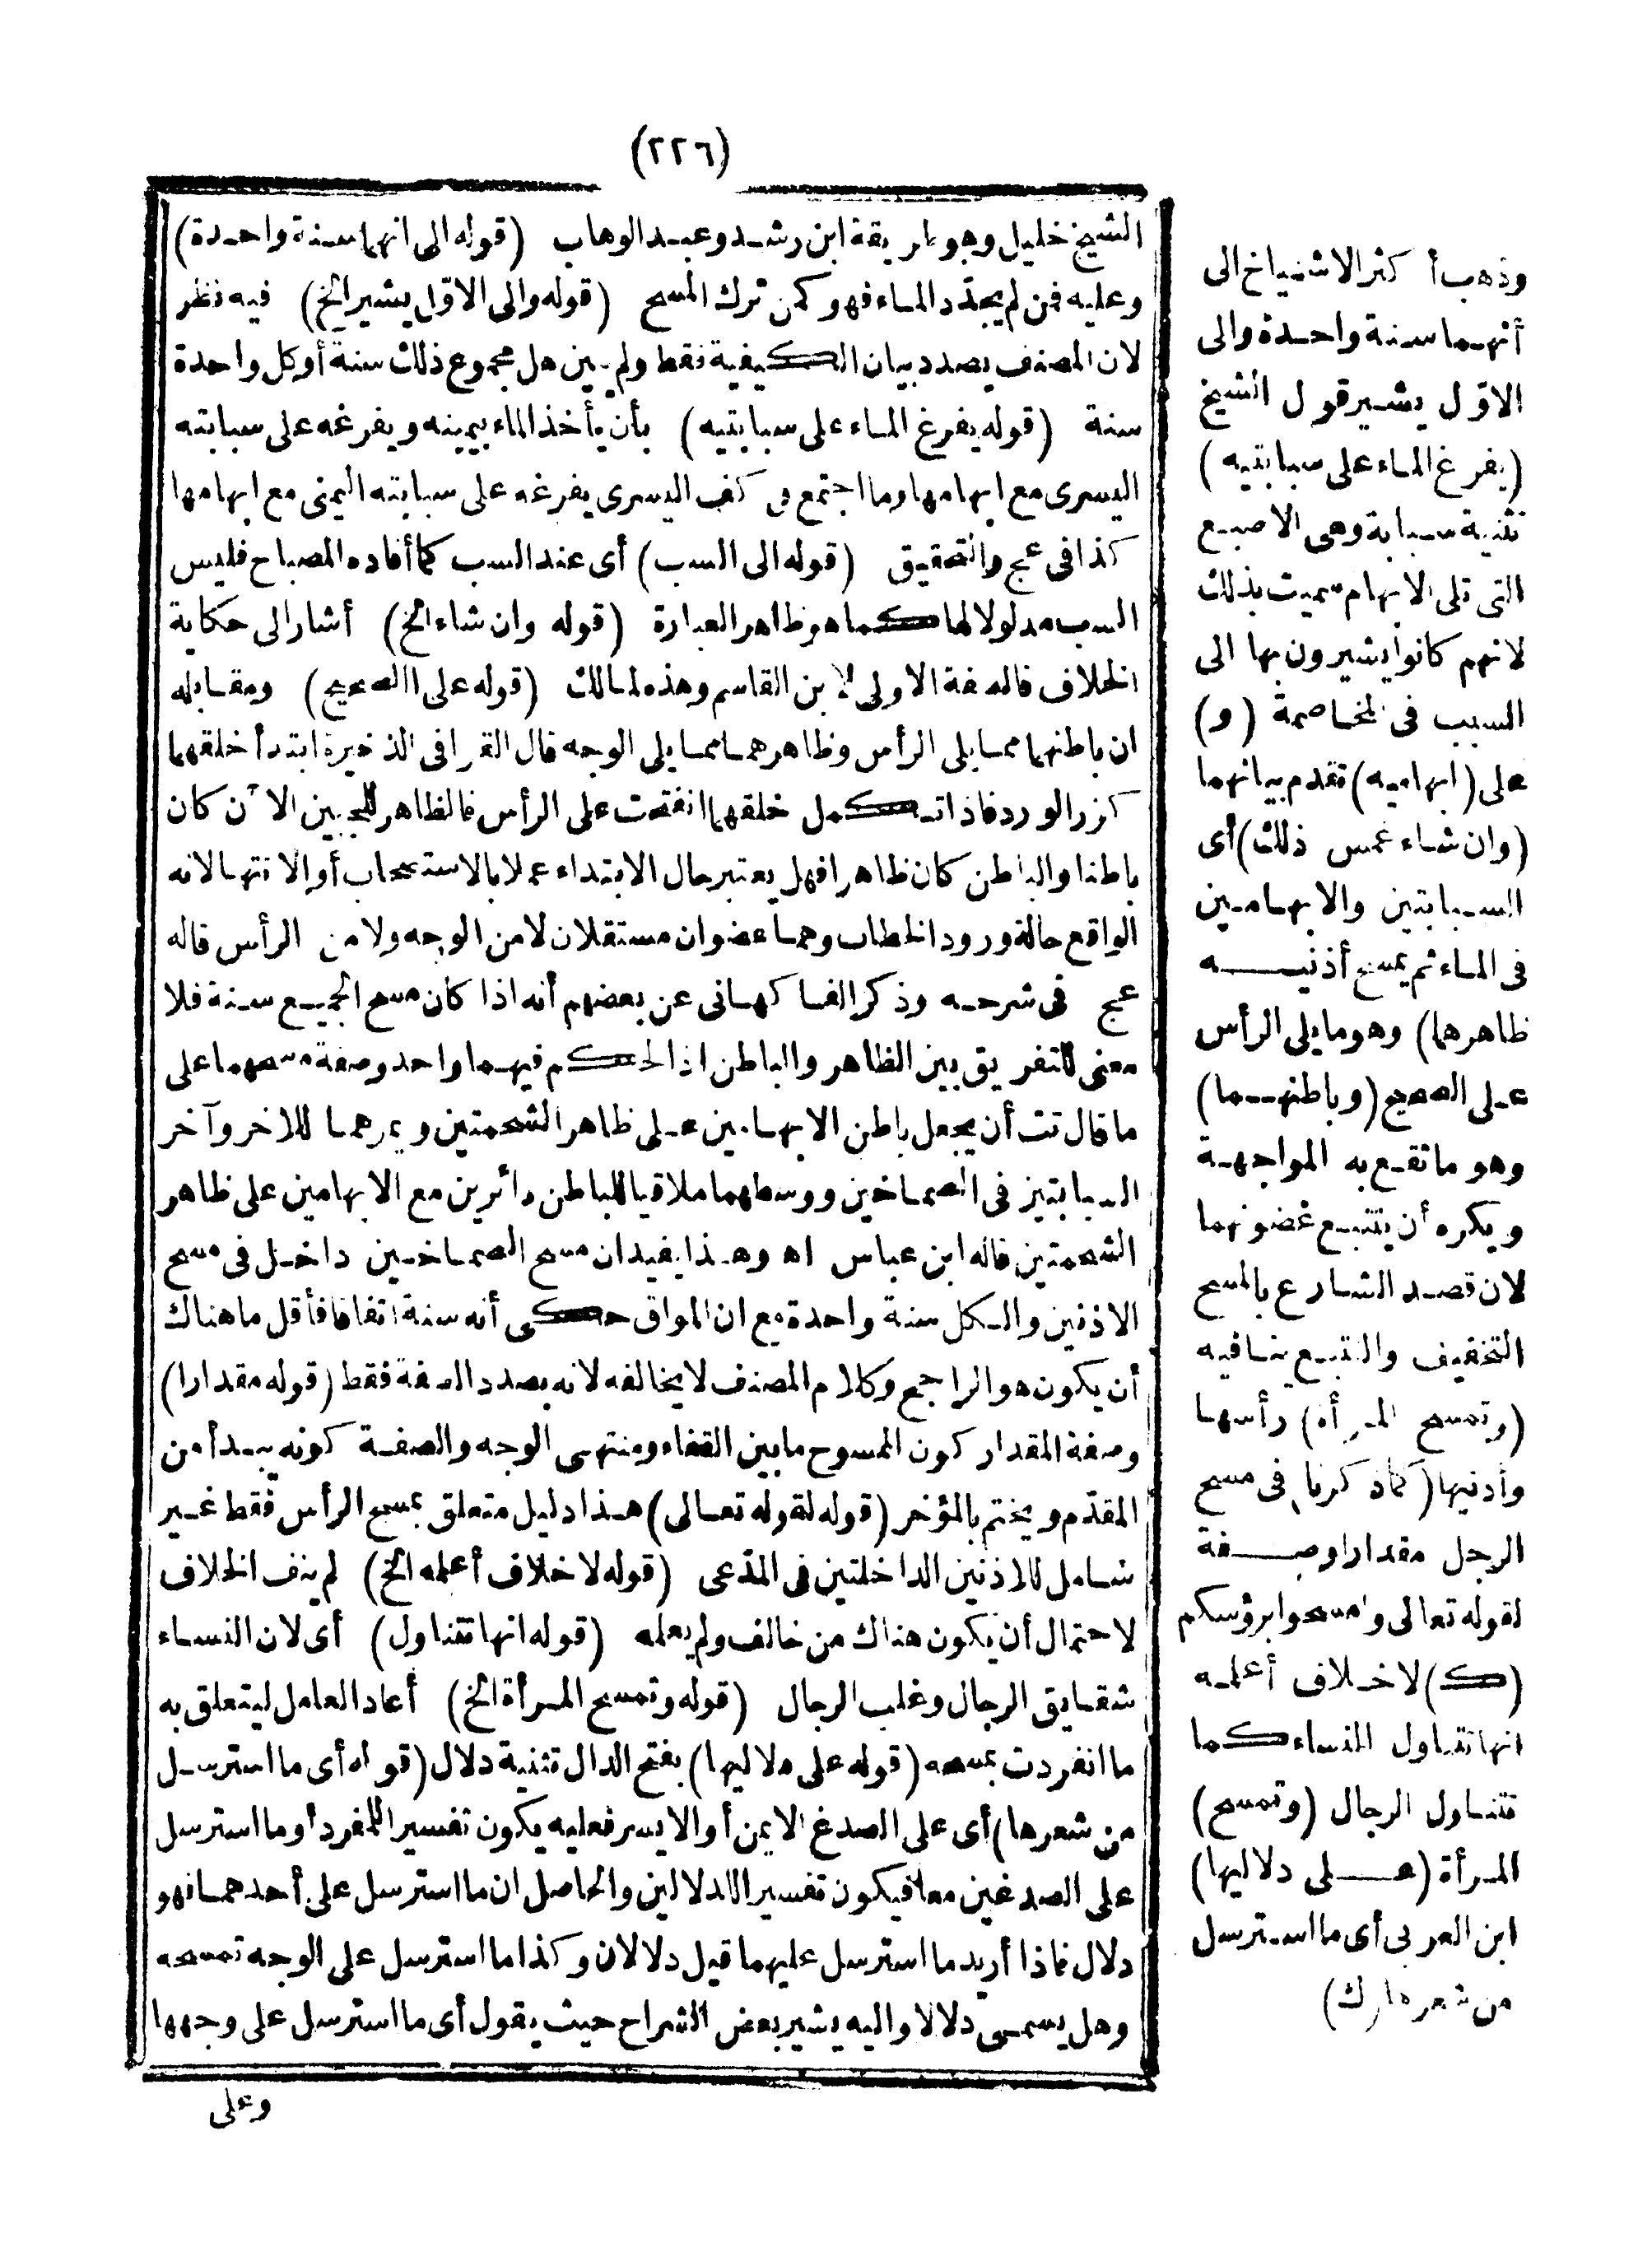 (٢٢٦)
الشيخ خليل وهو طريقة ابن رشد وعبد الوهاب (قوله الى انهما سنة واحدة)
وعليه فمن لم يجدّد الماء فهو كمن ترك المسح (قوله والى الاوّل يشير الخ) فيه نظر
لان المصنف بصدد بيان الكيفية فقط ولم يبين هل مجموع ذلك سنة أو كل واحدة
سنة (قوله يفرغ الماء على سبابتيه) بأن يأخذ الماء بيمينه ويفرغه على سبابته
اليسرى مع ابهامها وما اجتمع فى كف اليسرى يفرغه على سبابته اليمنى مع ابهامها
كذا فى عج والتحقيق (قوله الى السب) أى عند السب كما أفاده المصباح فليس
السب مدلولا لها كما هو ظاهر العبارة (قوله وان شاء الخ) أشار الى حكاية
الخلاف فالصفة الاولى لابن القاسم وهذه لمالك (قوله على الصحيح) ومقابله
ان باطنهما مما يلى الرأس وظاهرهما مما يلى الوجه قال القرافى الذخيرة ابتدأ خلقهما
كزر الورد فاذا تكمل خلقهما انفتحت على الرأس فالظاهر للجبين الآن كان
باطنا والباطن كان ظاهرا فهل يعتبر حال الابتداء عملا بالاستصحاب أو الانتها لانه
الواقع حالة ورود الخطاب وهما عضوان مستقلان لا من الوجه ولا من الرأس قاله
عج فى شرحه وذكر الفاكهانى عن بعضهم أنه اذا كان مسح الجميع سنة فلا
معنى للتفريق بين الظاهر والباطن اذ الحكم فيهما واحد وصفة مسحهما على
ما قال تت أن يجعل باطن الابهامين على ظاهر الشحمتين ويمرهما للآخر وآخر
السبابتين فى الصماخين ووسطهما ملاقيا للباطن دائرين مع الابهامين على ظاهر
الشحمتين قاله ابن عباس اه وهذا يفيد ان مسح الصماخين داخل فى مسح
الاذنين والكل سنة واحدة مع ان المواق حكى أنه سنة اتفاقا فأقل ما هناك
أن يكون هو الراجح وكلام المصنف لا يخالفه لانه بصدد الصفة فقط (قوله مقدارا)
وصفة المقدار كون الممسوح ما بين القفاء ومنتهى الوجه والصفة كونه يبدأ من
المقدّم ويختم بالمؤخر (قوله لقوله تعالى) هذا دليل متعلق بمسح الرأس فقط غير
شامل للاذنين الداخلتين فى المدّعى (قوله لا خلاف أعلمه الخ) لم ينف الخلاف
لاحتمال أن يكون هناك من خالف ولم يعلمه (قوله انها تتناول) أى لان النساء
شقايق الرجال وغلب الرجال (قوله وتمسح المرأة الخ) أعاد العامل ليتعلق به
ما انفردت بمسحه (قوله على دلاليها) بفتح الدال تثنية دلال (قوله أى ما استرسل
من شعرها) أى على الصدغ الايمن أو الايسر فعليه يكون تفسيرا للمفرد أو ما استرسل
على الصدغين معا فيكون تفسيرا للدلالين والحاصل ان ما استرسل على أحدهما فهو
دلال فاذا أريد ما استرسل عليهما قيل دلالان وكذا ما استرسل على الوجه تمسحه
وهل يسمى دلالا واليه يشير بعض الشراح حيث يقول أى ما استرسل على وجهها
وعلى
وذهب أكثر الاشياخ الى
أنهما سنة واحدة والى
الاوّل يشير قول الشيخ
(يفرغ الماء على سبابتيه)
تثنية سبابة وهى الاصبع
التى تلى الابهام سميت بذلك
لانهم كانوا يشيرون بها الى
السب فى المخاصمة (و)
على (ابهاميه) تقدم بيانهما
(وان شاء غمس ذلك) أى
السبابتين والابهامين
فى الماء ثم يمسح أذنيه
ظاهرهما) وهو ما يلى الرأس
على الصحيح (وباطنهما)
وهو ما تقع به المواجهة
ويكره أن يتتبع غضونهما
لان قصد الشارع بالمسح
التخفيف والتتبع ينافيه
(وتمسح المرأة) رأسها
وأذنيها (كما ذكرنا) فى مسح
الرجل مقدارا وصفة
لقوله تعالى وامسحوا برؤسكم
(ك) لا خلاف أعلمه
انها تتناول النساء كما
تتناول الرجال (وتمسح)
المرأة (على دلاليها)
ابن العربى أى ما استرسل
من شعرها (ك)